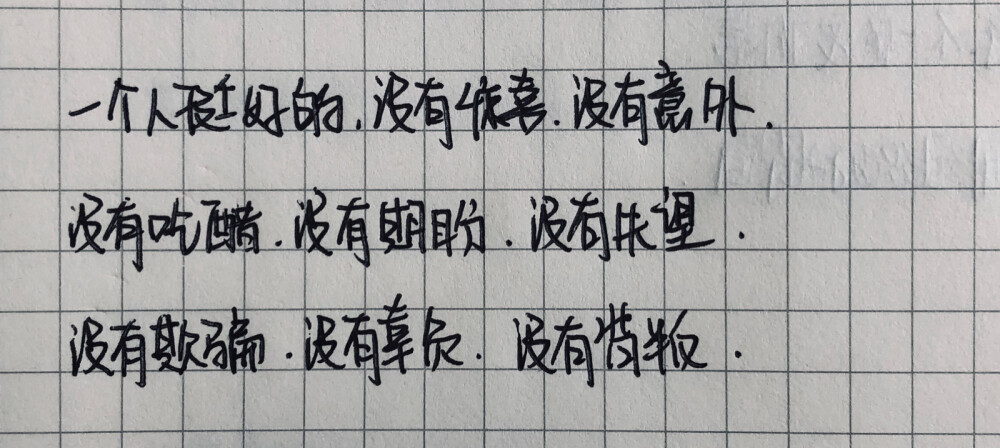 一个人挺好的.没有惊喜.没有意外.
没有吃醋.没有期盼.没有失望.
没有欺骗.没有辜负.没有背叛.